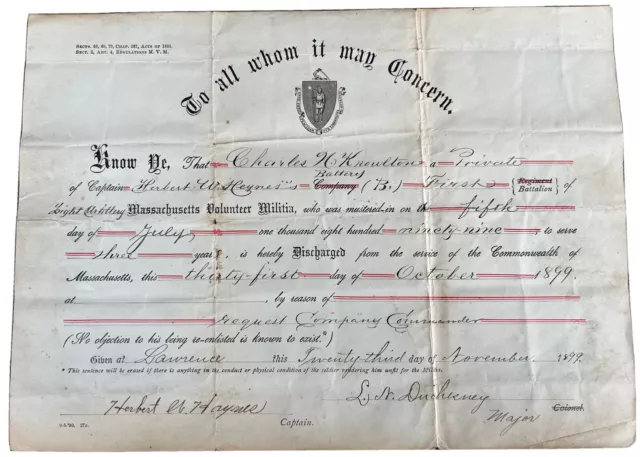 Sects. 68, 69, 70, Chap. 367, Acts of 1893.
Sect. 2, Art. 4, Regulations M. V. M.
To all whom it may Concern.
Know Ye, That Charles H Knowlton a Private
Battery
of Captain Herbert W. Haynes's Company (B.) First { Regiment Battalion } of
Light Artillery Massachusetts Volunteer Militia, who was mustered-in on the fifth
day of July one thousand eight hundred ninety-nine to serve
three years, is hereby Discharged from the service of the Commonwealth of
Massachusetts, this thirty-first day of October 1899
at , by reason of
request Company Commander
(No objection to his being re-enlisted is known to exist.*)
Given at Lawrence this Twenty third day of November 1899.
* This sentence will be erased if there is anything in the conduct or physical condition of the soldier rendering him unfit for the Militia.
L. N. Duchesney
Herbert W. Haynes
Major Colonel.
Captain.